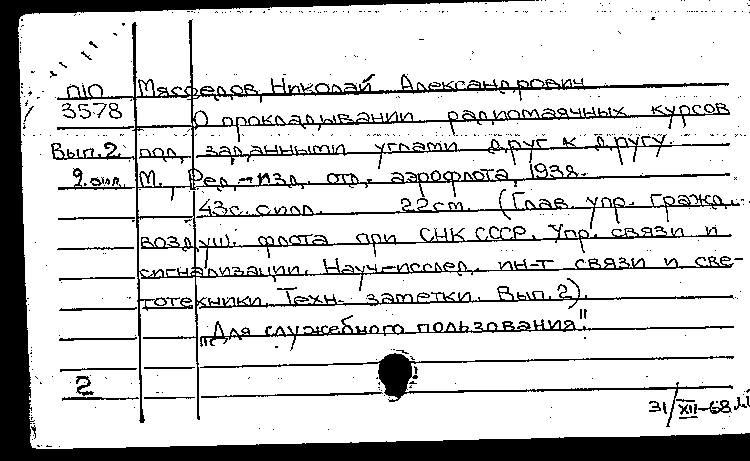 П10 Мясоедов, Николай Александрович
3578 О прокладывании радиомаячных курсов
Вып. 2 под заданными углами друг к другу.
2 экз. М., Ред.-изд. отд. аэрофлота, 1938.
43 с. с илл. 22 см. (Глав. упр. Гражд.
воздуш. флота при СНК СССР. Упр. связи и
сигнализации. Науч-исслед. ин-т связи и све-
тотехники. Техн. заметки. Вып. 2).
"Для служебного пользования".
2
31/XII-68